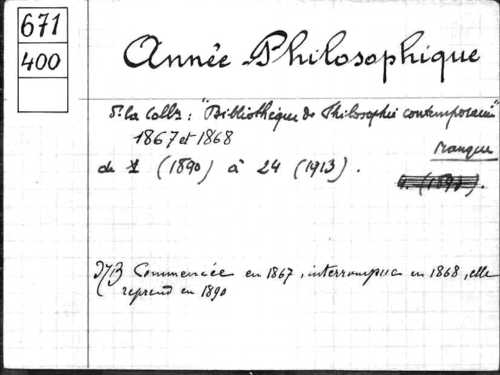 671
400
Année Philosophique
Ds la Colln : "Bibliothèque de Philosophie contemporaine"
1867 et 1868
manque
de 1 (1890) à 24 (1913).
NB Commencée en 1867, interrompue en 1868, elle
reprend en 1890